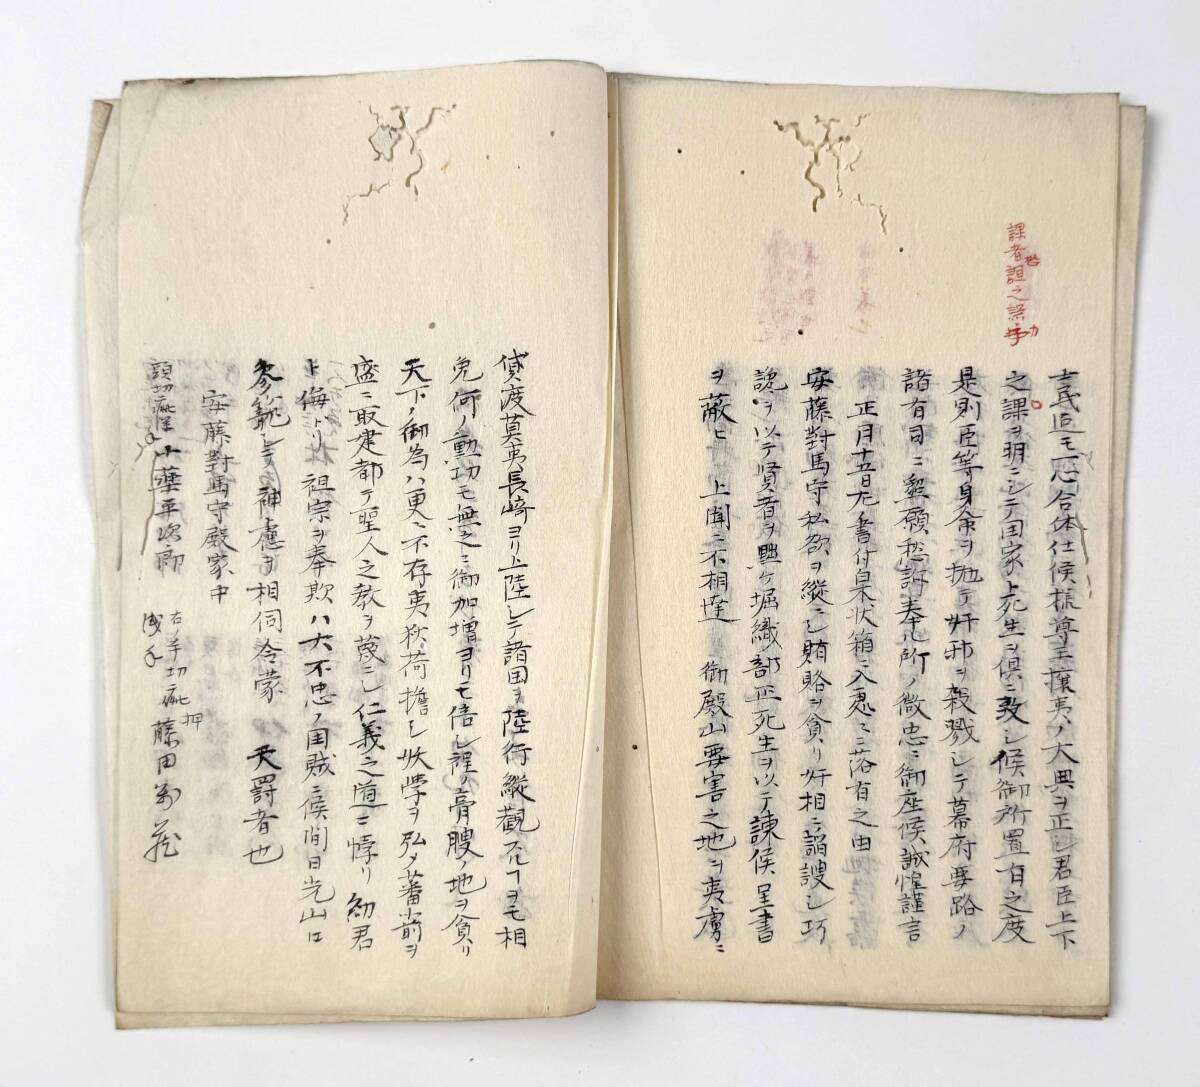 課者誼之誤乎
士民迄モ一心合体仕候様尊王攘夷ノ大典ヲ正シ君臣上下
之課ヲ明ニシテ国家ト死生ヲ倶ニ致シ候御所置有之度
是則臣等身命ヲ抛テ奸邪ヲ殺戮シテ幕府要路ノ
諸有司ニ懇願愁訴奉ル所ノ微忠ニ御座候誠惶謹言
正月十五日 書付 状箱ニ入 落有之由
安藤對馬守私欲ヲ縦ニシ賄賂ヲ貪リ奸相ニ謟諛シ巧
説ヲ以テ賢者ヲ黜ケ堀織部正死生ヲ以テ諌候呈書
ヲ蔽ヒ 上聞ニ不相達 御殿山要害之地ヲ夷虜ニ
貸渡莫夷長崎ヨリ上陸シテ諸国ヲ陸行縦観スルヿヲモ相
免何ノ勲功モ無之ニ御加増ヨリモ倍シ程ノ膏腴ノ地ヲ貪リ
天下ノ御為ハ更ニ不存夷狄ニ荷擔シ妖学ヲ弘メ蕃 前ヲ
盛ニ取建都テ聖人之教ヲ蔑ニシ仁義之道ニ悖リ 幼君
ト侮トリ祖宗ヲ奉欺ハ大不忠ノ国賊ニ候間日光山ニ
参籠シテ神慮ヲ相伺令蒙 天罰者也
安藤對馬守殿家中
頭切疵 小薬平次郎
右ノ手切疵押 浅手 藤田 蔵